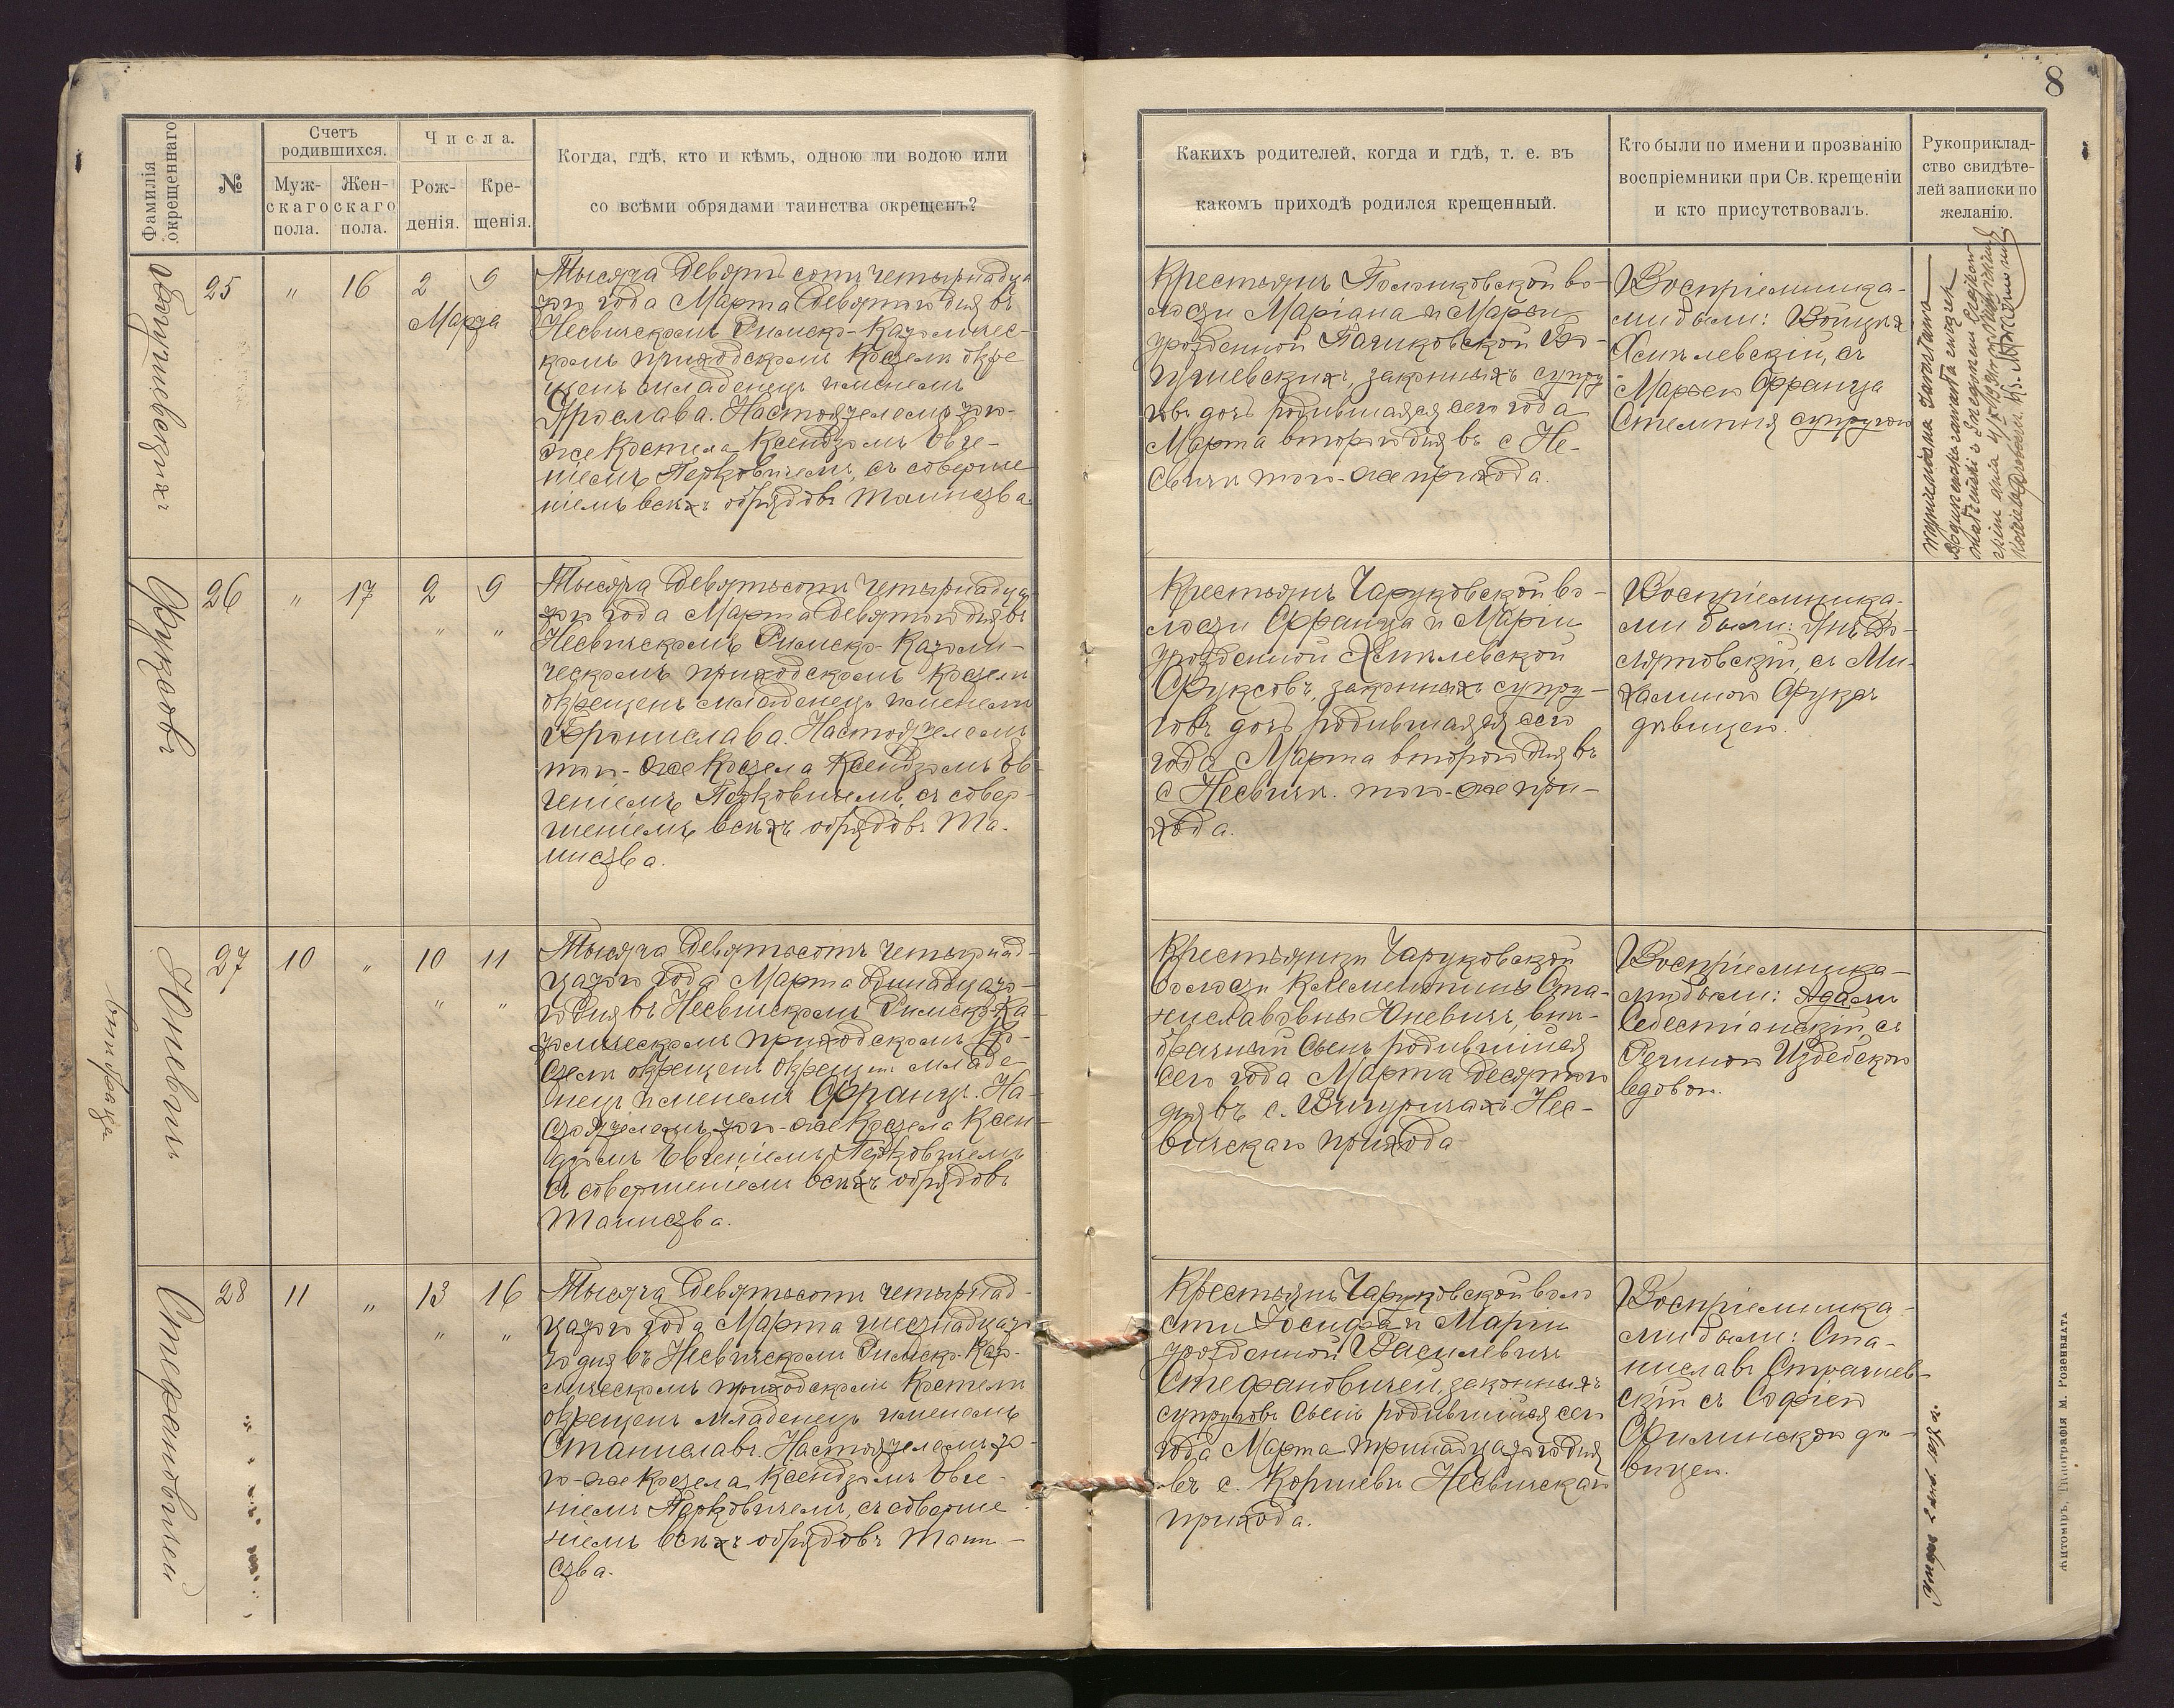 8
Фамилія окрещеннаго
№
Счетъ родившихся.
Муж-
скаго
пола.
Жен-
скаго
пола.
Числа.
Рож-
денія.
Кре-
щенія.
Когда, гдѣ, кто и кѣмъ, одною ли водою или
со всѣми обрядами таинства окрещенъ?
Какихъ родителей, когда и гдѣ, т. е. въ
какомъ приходѣ родился крещенный.
Кто были по имени и прозванію
воспріемники при Св. крещеніи
и кто присутствовалъ.
Рукоприклад-
ство свидѣте-
лей записки по
желанію.
25
"
16
2
9
Марта
Тысяча девятьсотъ четырнадца
таго года Марта девятаго дня въ
Несвичскомъ Римско-Католичес-
комъ приходскомъ Костелѣ окре
щенъ младенецъ именемъ
Ярослава. Настоятелемъ того-
же Костела Ксендзомъ Евге-
ніемъ Перковичемъ, съ соверше
ніемъ всѣхъ обрядовъ таинства.
Крестьянъ во-
лости Маріана и Марьи
урожденной
законныхъ супру
говъ дочь родившаяся сего года
Марта второго дня въ с Не-
свичѣ того-же прихода.
Воспріемника-
ми были:
Хмѣлевскій, съ
Марьею Франца
супругою
26
"
17
2
9
"
"
Тысяча девятьсотъ четырнадца
таго года Марта девятаго дня въ
Несвичскомъ Римско-Католи-
ческомъ приходскомъ Костелѣ
окрещенъ младенецъ именемъ
Бронислава. Настоятелемъ
того-же Костела Ксендзомъ Ев-
геніемъ Перковичемъ, съ совер-
шеніемъ всѣхъ обрядовъ Та-
инства.
Крестьянъ Чаруковской во-
лости Франца и Маріи
урожденной Хмѣлевской
Фуксовъ, законныхъ супру-
говъ дочь родившаяся сего
года Марта второго дня въ
с Несвичѣ того-же при-
хода.
Воспріемника-
ми были: Янъ
съ Ми-
халиною
дѣвицею.
Юневичъ
27
10
"
10
11
"
"
Тысяча девятьсотъ четырнад-
цатаго года Марта одинадцата-
го дня въ Несвичскомъ Римско-Ка-
толическомъ приходскомъ Ко-
стелѣ окрещенъ окрещенъ младе-
нецъ именемъ Францъ. На-
стоятелемъ того-же Костела Ксен-
дзомъ Евгеніемъ Перковичемъ
съ совершеніемъ всѣхъ обрядовъ
Таинства.
Крестьянки Чаруковской
волости Клементины Ста-
ниславовны Юневичъ, вне-
брачный сынъ родившійся
сего года Марта десятаго
дня въ с. Вичуринахъ Нес-
вичскаго прихода
Воспріемника-
ми были: Адамъ
Себестіанскій, съ
Региною Издебскою
вдовою.
Стефановичей
28
11
"
13
16
"
"
Тысяча девятьсотъ четырнад-
цатаго года Марта шестнадцата
го дня въ Несвичскомъ Римско-Като-
лическомъ приходскомъ Костелѣ
окрещенъ младенецъ именемъ
Станиславъ. Настоятелемъ то-
го-же Костела Ксендзомъ Евге-
ніемъ Перковичемъ, съ соверше
ніемъ всѣхъ обрядовъ Таин-
ства.
Крестьянъ Чаруковской воло
сти Іосифа и Маріи
урожденной Василевичъ
Стефановичей, законныхъ
супруговъ сынъ родившійся сего
года Марта тринадцатаго дня
въ с. Коршевѣ Несвичскаго
прихода.
Воспріемника-
ми были: Ста-
ниславъ
скій съ Софіею
Филинскою дѣ-
вицею.
Житоміръ, Типографія М. Розенблата